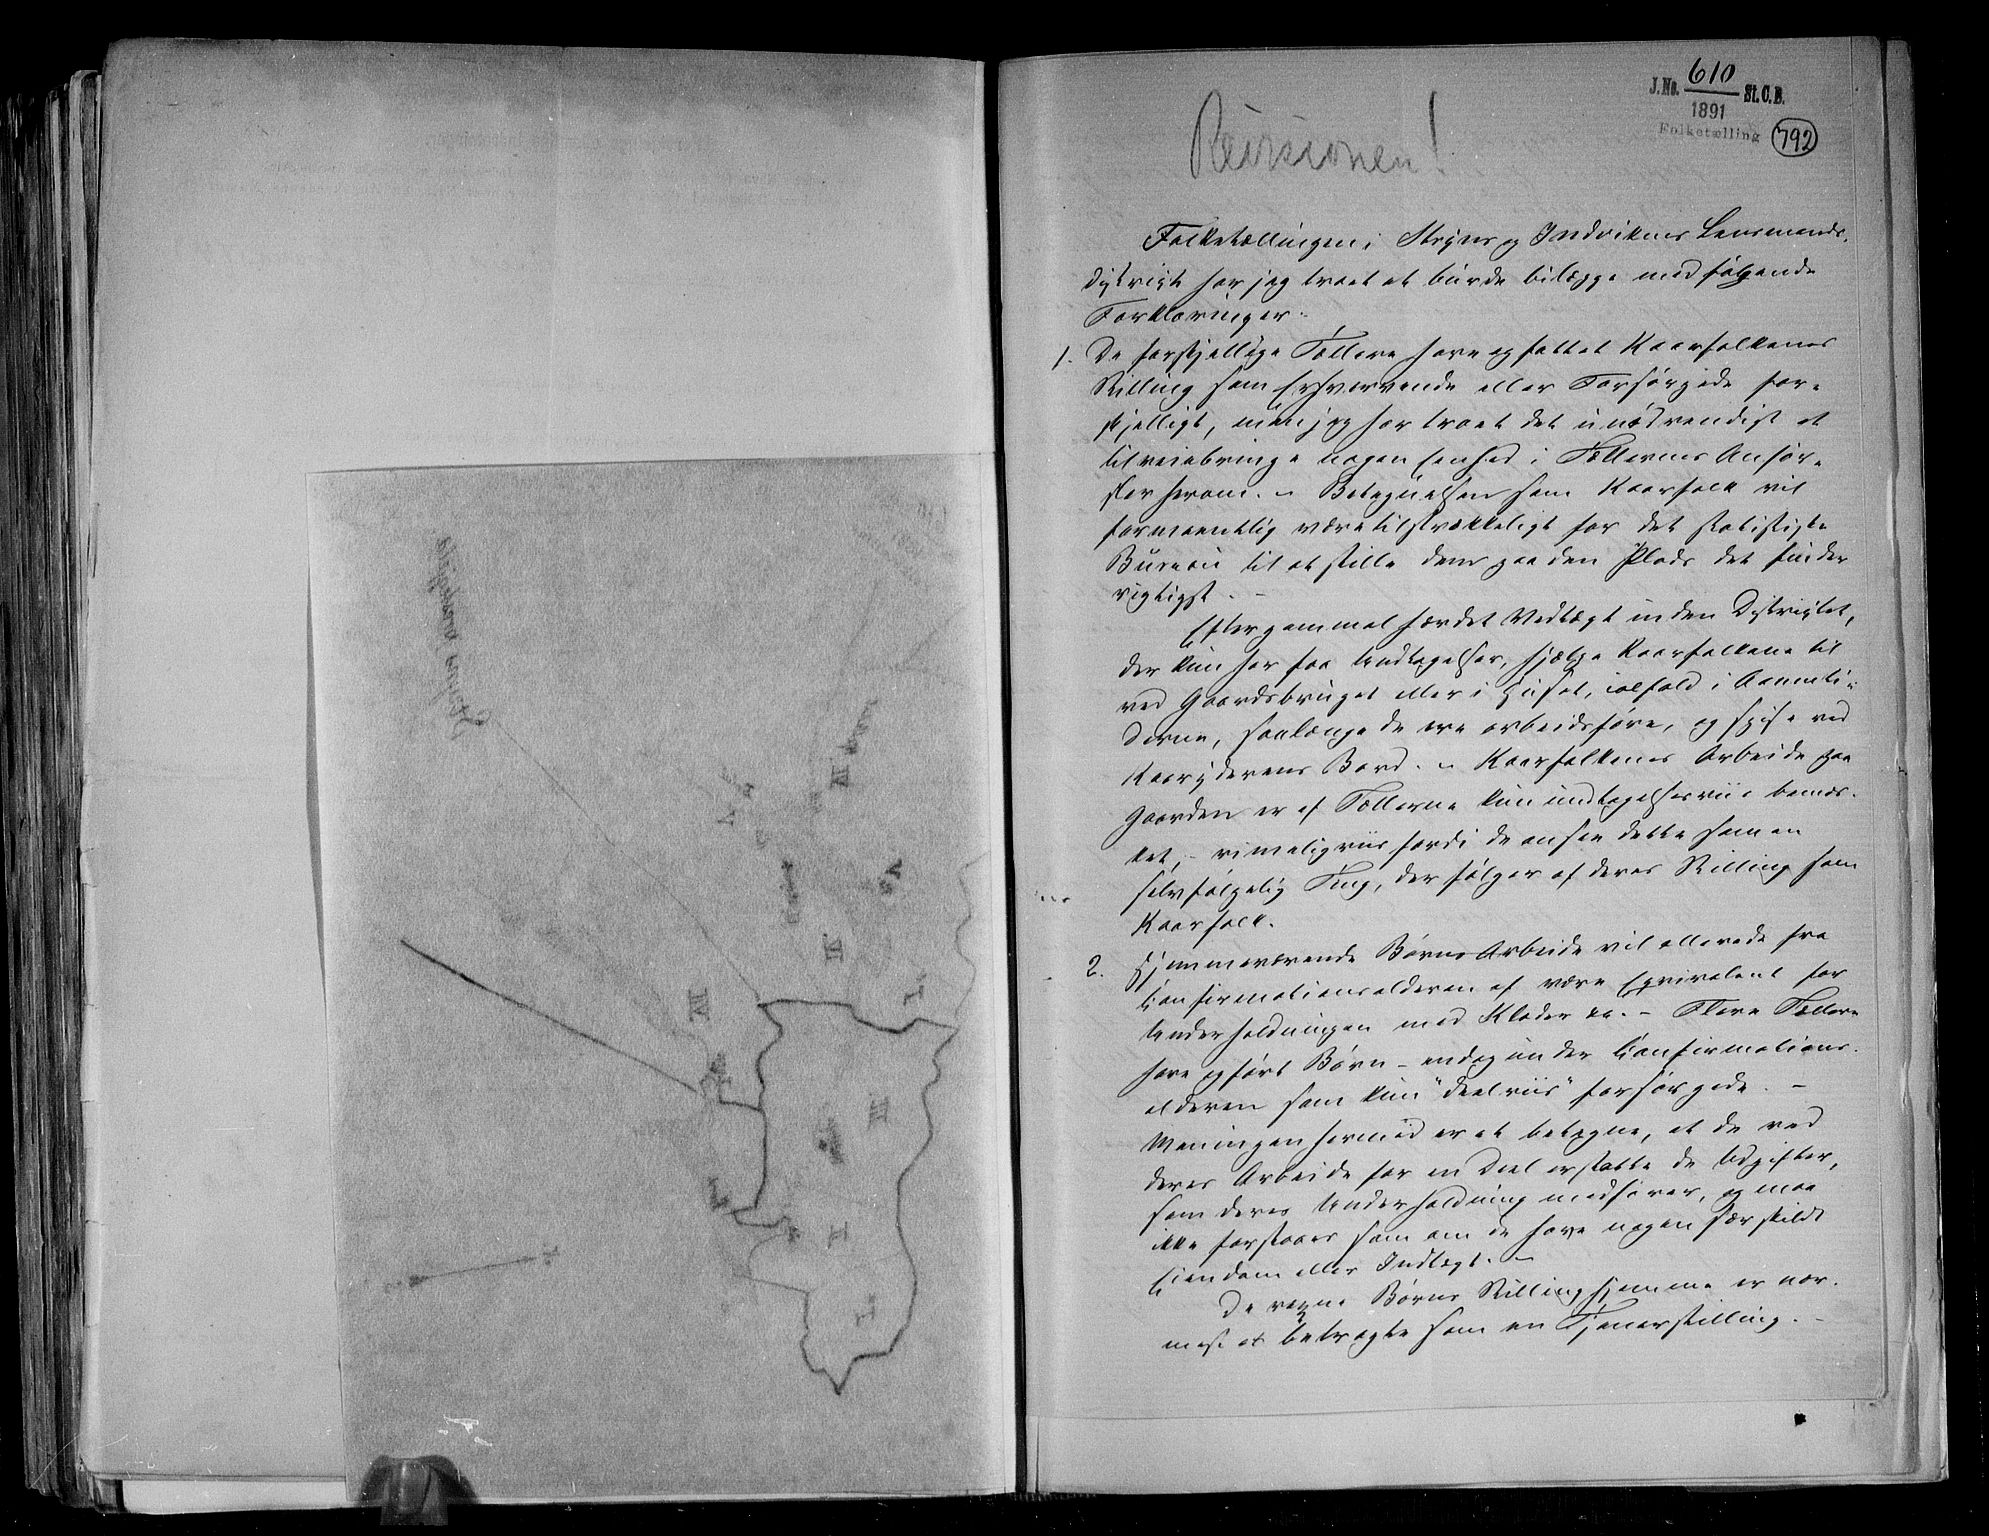 J.No. 610 St.C.B.
1891
Folketælling 792
Revisionen!
Folketællingen i Stryns og Indvikens Lensmands-
distrikt har jeg troet at burde bilægge med følgende
Forklaringer:
1. De forskjellige Tællere have opfattet Kaarfolkenes
Stilling som Erhvervende eller Forsørgede for-
skjelligt, men jeg har troet det unødvendigt at
tilveiebringe nogen Eenhed i Tællernes Anfør-
sler herom. – Betegnelsen som Kaarfolk vil
formeentlig være tilstrækkeligt for det statistiske
Bureau til at stille dem paa den Plads det finder
rigtigst. –
Efter gammel hævdet Vedtægt inden Distriktet,
der kun har faa Undtagelser, hjælpe Kaarfolkene til
ved Gaardsbruget eller i Huset, ialfald i Aanneti-
derne, saalænge de ere arbeidsføre, og spise ved
Kaaryderens Bord. – Kaarfolkenes Arbeide paa
Gaarden er af Tællerne kun undtagelsesviis bemær-
ket, – rimeligviis fordi de ansee dette som en
selvfølgelig Ting, der følger af deres Stilling som
Kaarfolk.
2. Hjemmeværende Børns Arbeide vil allerede fra
Confirmationsalderen af være Eqvivalent for
Underholdningen med Klæder &c. – Flere Tællere
have opført Børn – endog under Confirmations-
alderen som kun "deelviis" forsørgede. –
Meningen hermed er at betegne, at de ved
deres Arbeide for en Deel erstatte de Udgifter,
som deres Underholdning medfører, og maa
ikke forstaaes som om de have nogen særskildt
Eiendom eller Indtægt. –
De voxne Børns Stilling hjemme er nær-
mest at betragte som en Tjenerstilling. –